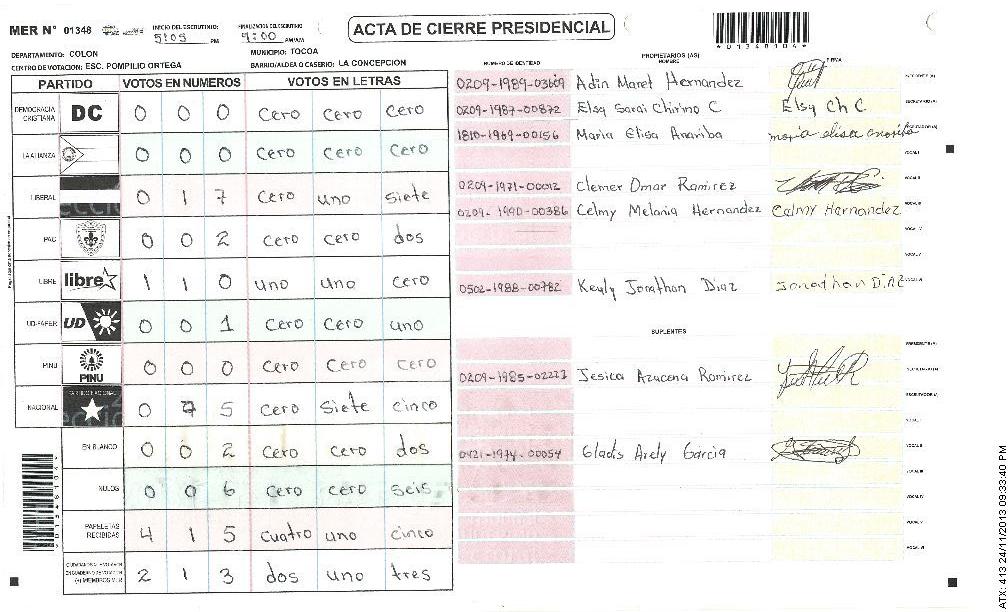 MER N° 01348
INICIO DEL ESCRUTINIO 5:05 PM
FINALIZACION DEL ESCRUTINIO 9:00 PM/AM
ACTA DE CIERRE PRESIDENCIAL
DEPARTAMENTO: COLON
MUNICIPIO: TOCOA
CENTRO DE VOTACION: ESC. POMPILIO ORTEGA
BARRIO/ALDEA O CASERIO: LA CONCEPCION
PARTIDO VOTOS EN NUMEROS VOTOS EN LETRAS
DEMOCRACIA CRISTIANA DC 0 0 0 Cero Cero Cero
LA ALIANZA 0 0 0 Cero Cero Cero
LIBERAL 0 1 7 Cero uno siete
PAC 0 0 2 Cero Cero dos
LIBRE libre 1 1 0 uno uno Cero
UD-FAPER UD 0 0 1 Cero Cero uno
PINU PINU 0 0 0 Cero Cero Cero
NACIONAL 0 7 5 Cero Siete cinco
EN BLANCO 0 0 2 Cero Cero dos
NULOS 0 0 6 Cero cero seis
PAPELETAS RECIBIDAS 4 1 5 cuatro uno cinco
2 1 3 dos uno tres
NUMERO DE IDENTIDAD PROPIETARIOS (AS) NOMBRE FIRMA
0209-1989-03609 Adin Maret Hernandez
0209-1987-00872 Elsy Sarai Chirino C Elsy Ch C
1810-1969-00156 Maria Elisa Anariba maria elisa anariba
0209-1971-00012 Clemer Omar Ramirez
0209-1990-00386 Celmy Melania Hernandez Celmy Hernandez
0502-1988-00782 Keyly Jonathan Diaz Jonathan DiAZ
SUPLENTES
0209-1985-02223 Jesica Azucena Ramirez
0421-1974-00054 Gladis Arely Garcia
ATX: 413 24/11/2013 09:33:40 PM